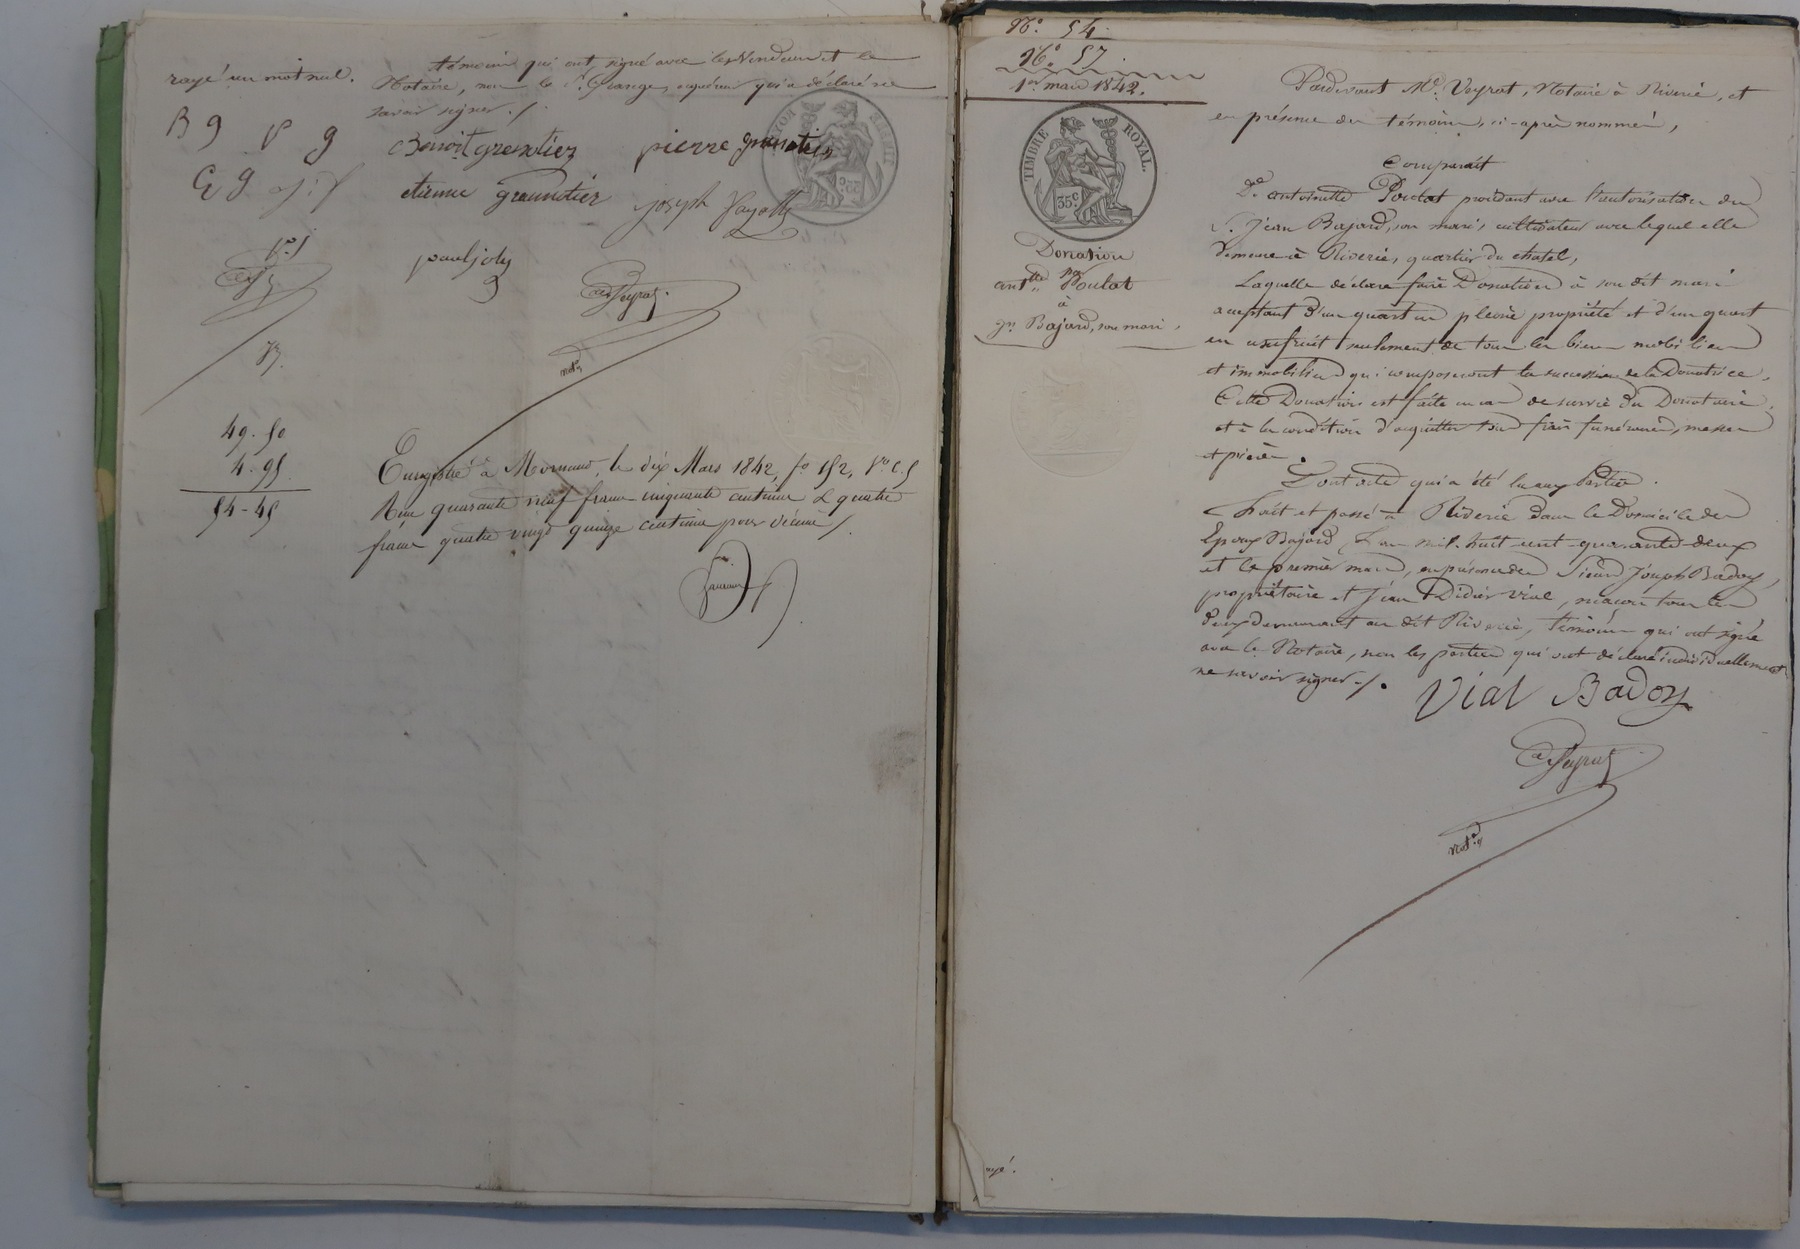 rayé un mot nul.
témoins qui ont signé avec les Vendeurs et le
Notaire, non le s.r Grange, acquéreur qui a déclaré ne
savoir signer ./.
B g p g
Benoit grenotiez pierre
E g
etienne joseph fayolle
paul joly
not.re
49.50
4.95
54-45
Enregistré à Mornant, le dix Mars 1842, f.o 152, V.o c. 5
Reçu quarante neuf francs cinquante centimes & quatre
francs quatre vingt quinze centimes pour décime /.
N.o 54.
N.o 57.
1.er mars 1842.
TIMBRE ROYAL.
35 c
Donation
par
ant.tte Poulat
à
J.n Bajard, son mari.
Pardevant M.e Veyrat, Notaire à Riverie, et
en présence des témoins, ci-après nommés,
Comparaît
D.e antoinette Poulat procédant avec l'autorisation du
S. Jean Bajard, son mari, cultivateur avec lequel elle
demeure à Riverie, quartier du chatel,
Laquelle déclare faire Donation à son dit mari
acceptant d'un quart en pleine propriété et d'un quart
en usufruit seulement de tous les biens mobiliers
et immobiliers qui composeront la succession de la Donatrice.
Cette Donation est faite en cas de survie du Donataire,
et à la condition d'acquitter tous frais funéraires, messes
et prières.
Dont acte qui a été lu aux Parties.
Fait et passé à Riverie dans le Domicile des
Epoux Bajard, L'an mil huit cent quarante-deux
et le premier mars, en présence des Sieurs Joseph Badoy,
propriétaire et Jean Didier Vial, maçon tous les
deux demeurant au dit Riverie, témoins qui ont signé
avec le Notaire, non les parties qui ont déclaré individuellement
ne savoir signer ./.
Vial Badoy
Veyrat
not.re